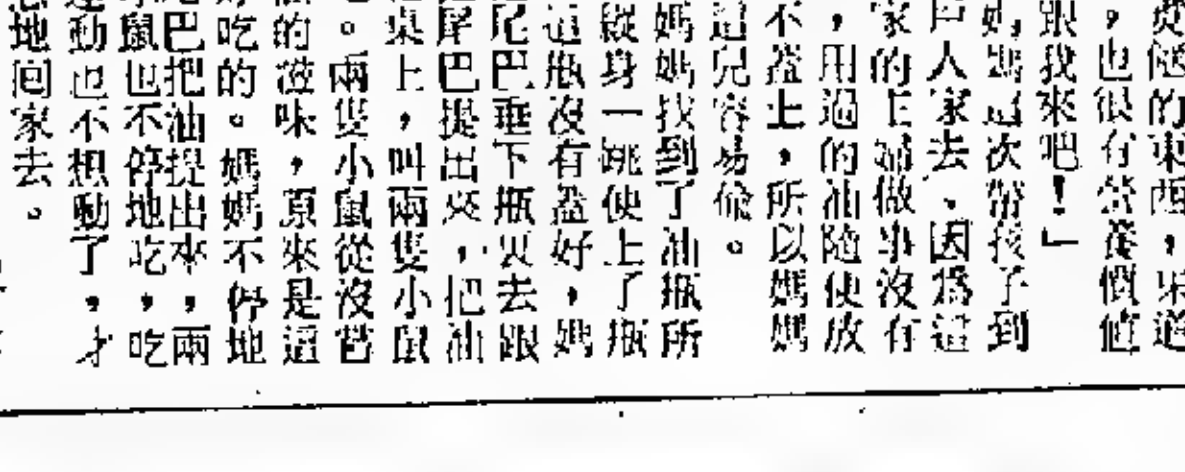 的東西，味道
，也很有營養價值
跟我來吧！」
媽媽這次帶孩子到
戶人家去、因為這
家的主婦做事沒有
，用過的油隨便放
不蓋上，所以媽媽
這兒容易偷。
媽媽找到了油瓶所
縱身一跳便上了瓶
這瓶沒有蓋好，媽
尾巴垂下瓶裏去跟
尾巴提出來，把油
桌上，叫兩隻小鼠
。兩隻小鼠從沒嘗
的滋味，原來是這
好吃的。媽媽不停地
巴把油提出來，兩
鼠也不停地吃，吃
動也不想動了，才
地回家去。